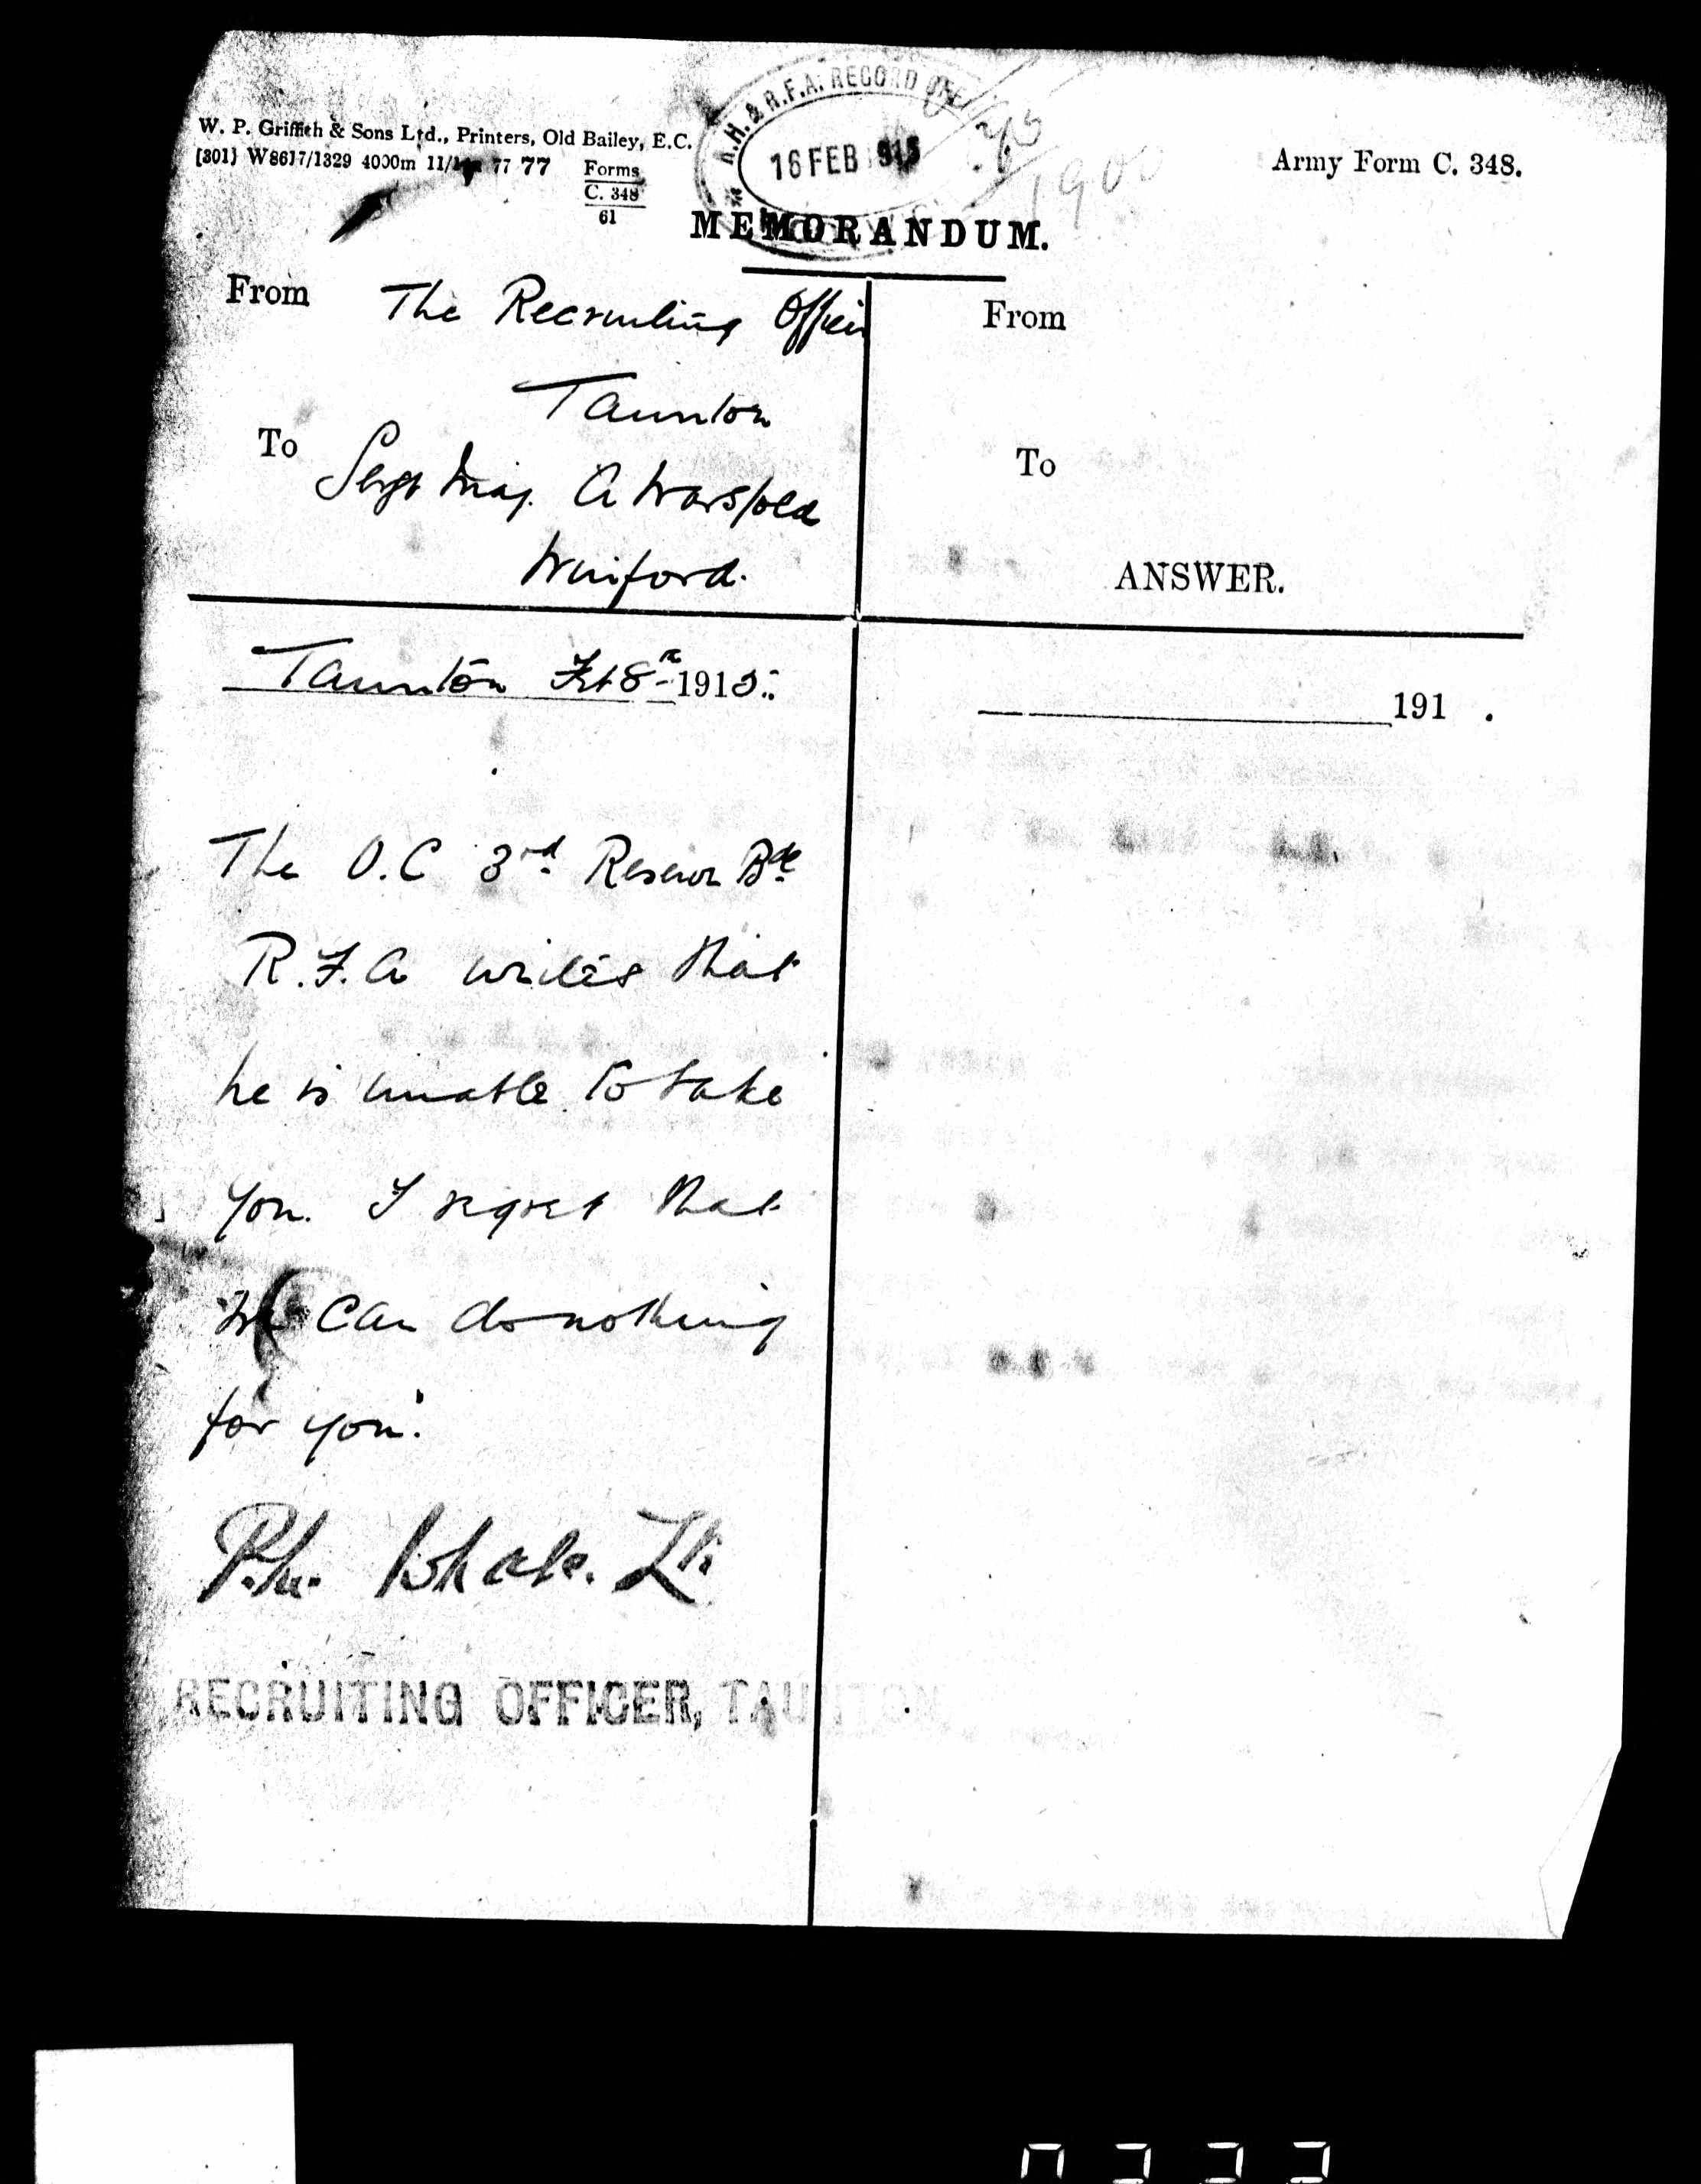 W. P. Griffith & Sons Ltd., Printers, Old Bailey, E.C.
[301] W8617/1329 4000m 11/14 77 77
Forms
C. 348
61
R.H. & R.F.A. RECORD OFF
16 FEB 1915
1900
Army Form C. 348.
MEMORANDUM.
From The Recruiting Officer
Taunton
To Sergt Maj. A Warsfold
Winsford.
From
To
ANSWER.
Taunton Feb 8th 1915.
191 .
The O.C 3rd Reserve Bde
R.F.A writes that
he is unable to take
you. I regret that
we can do nothing
for you.
Whale. Lt.
RECRUITING OFFICER, TAUNTON